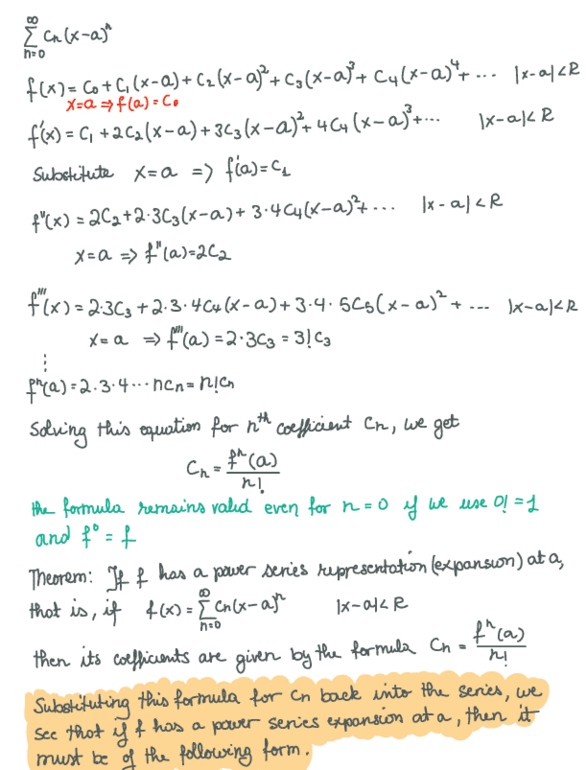 ∞
Σ Cn(x-a)^n
n=0
f(x) = C₀ + C₁(x-a) + C₂(x-a)² + C₃(x-a)³ + C₄(x-a)⁴ + ... |x-a|<R
x=a ⇒ f(a) = C₀
f'(x) = C₁ + 2C₂(x-a) + 3C₃(x-a)² + 4C₄(x-a)³ + ... |x-a|<R
Substitute x=a => f'(a)=C₁
f''(x) = 2C₂ + 2·3C₃(x-a) + 3·4C₄(x-a)² + ... |x-a|<R
x=a ⇒ f''(a)=2C₂
f'''(x) = 2·3C₃ + 2·3·4C₄(x-a) + 3·4·5C₅(x-a)² + ... |x-a|<R
x=a ⇒ f'''(a) = 2·3C₃ = 3!C₃
⋮
fⁿ(a) = 2·3·4···nCn = n!Cn
Solving this equation for nth coefficient Cn, we get
Cn = fⁿ(a)/n!
the formula remains valid even for n=0 if we use 0!=1
and f⁰ = f
Theorem: If f has a power series representation (expansion) at a,
that is, if f(x) = Σ_{n=0}^{∞} Cn(x-a)ⁿ |x-a|<R
then its coefficients are given by the formula Cn = fⁿ(a)/n!
Substituting this formula for Cn back into the series, we
see that if f has a power series expansion at a, then it
must be of the following form.